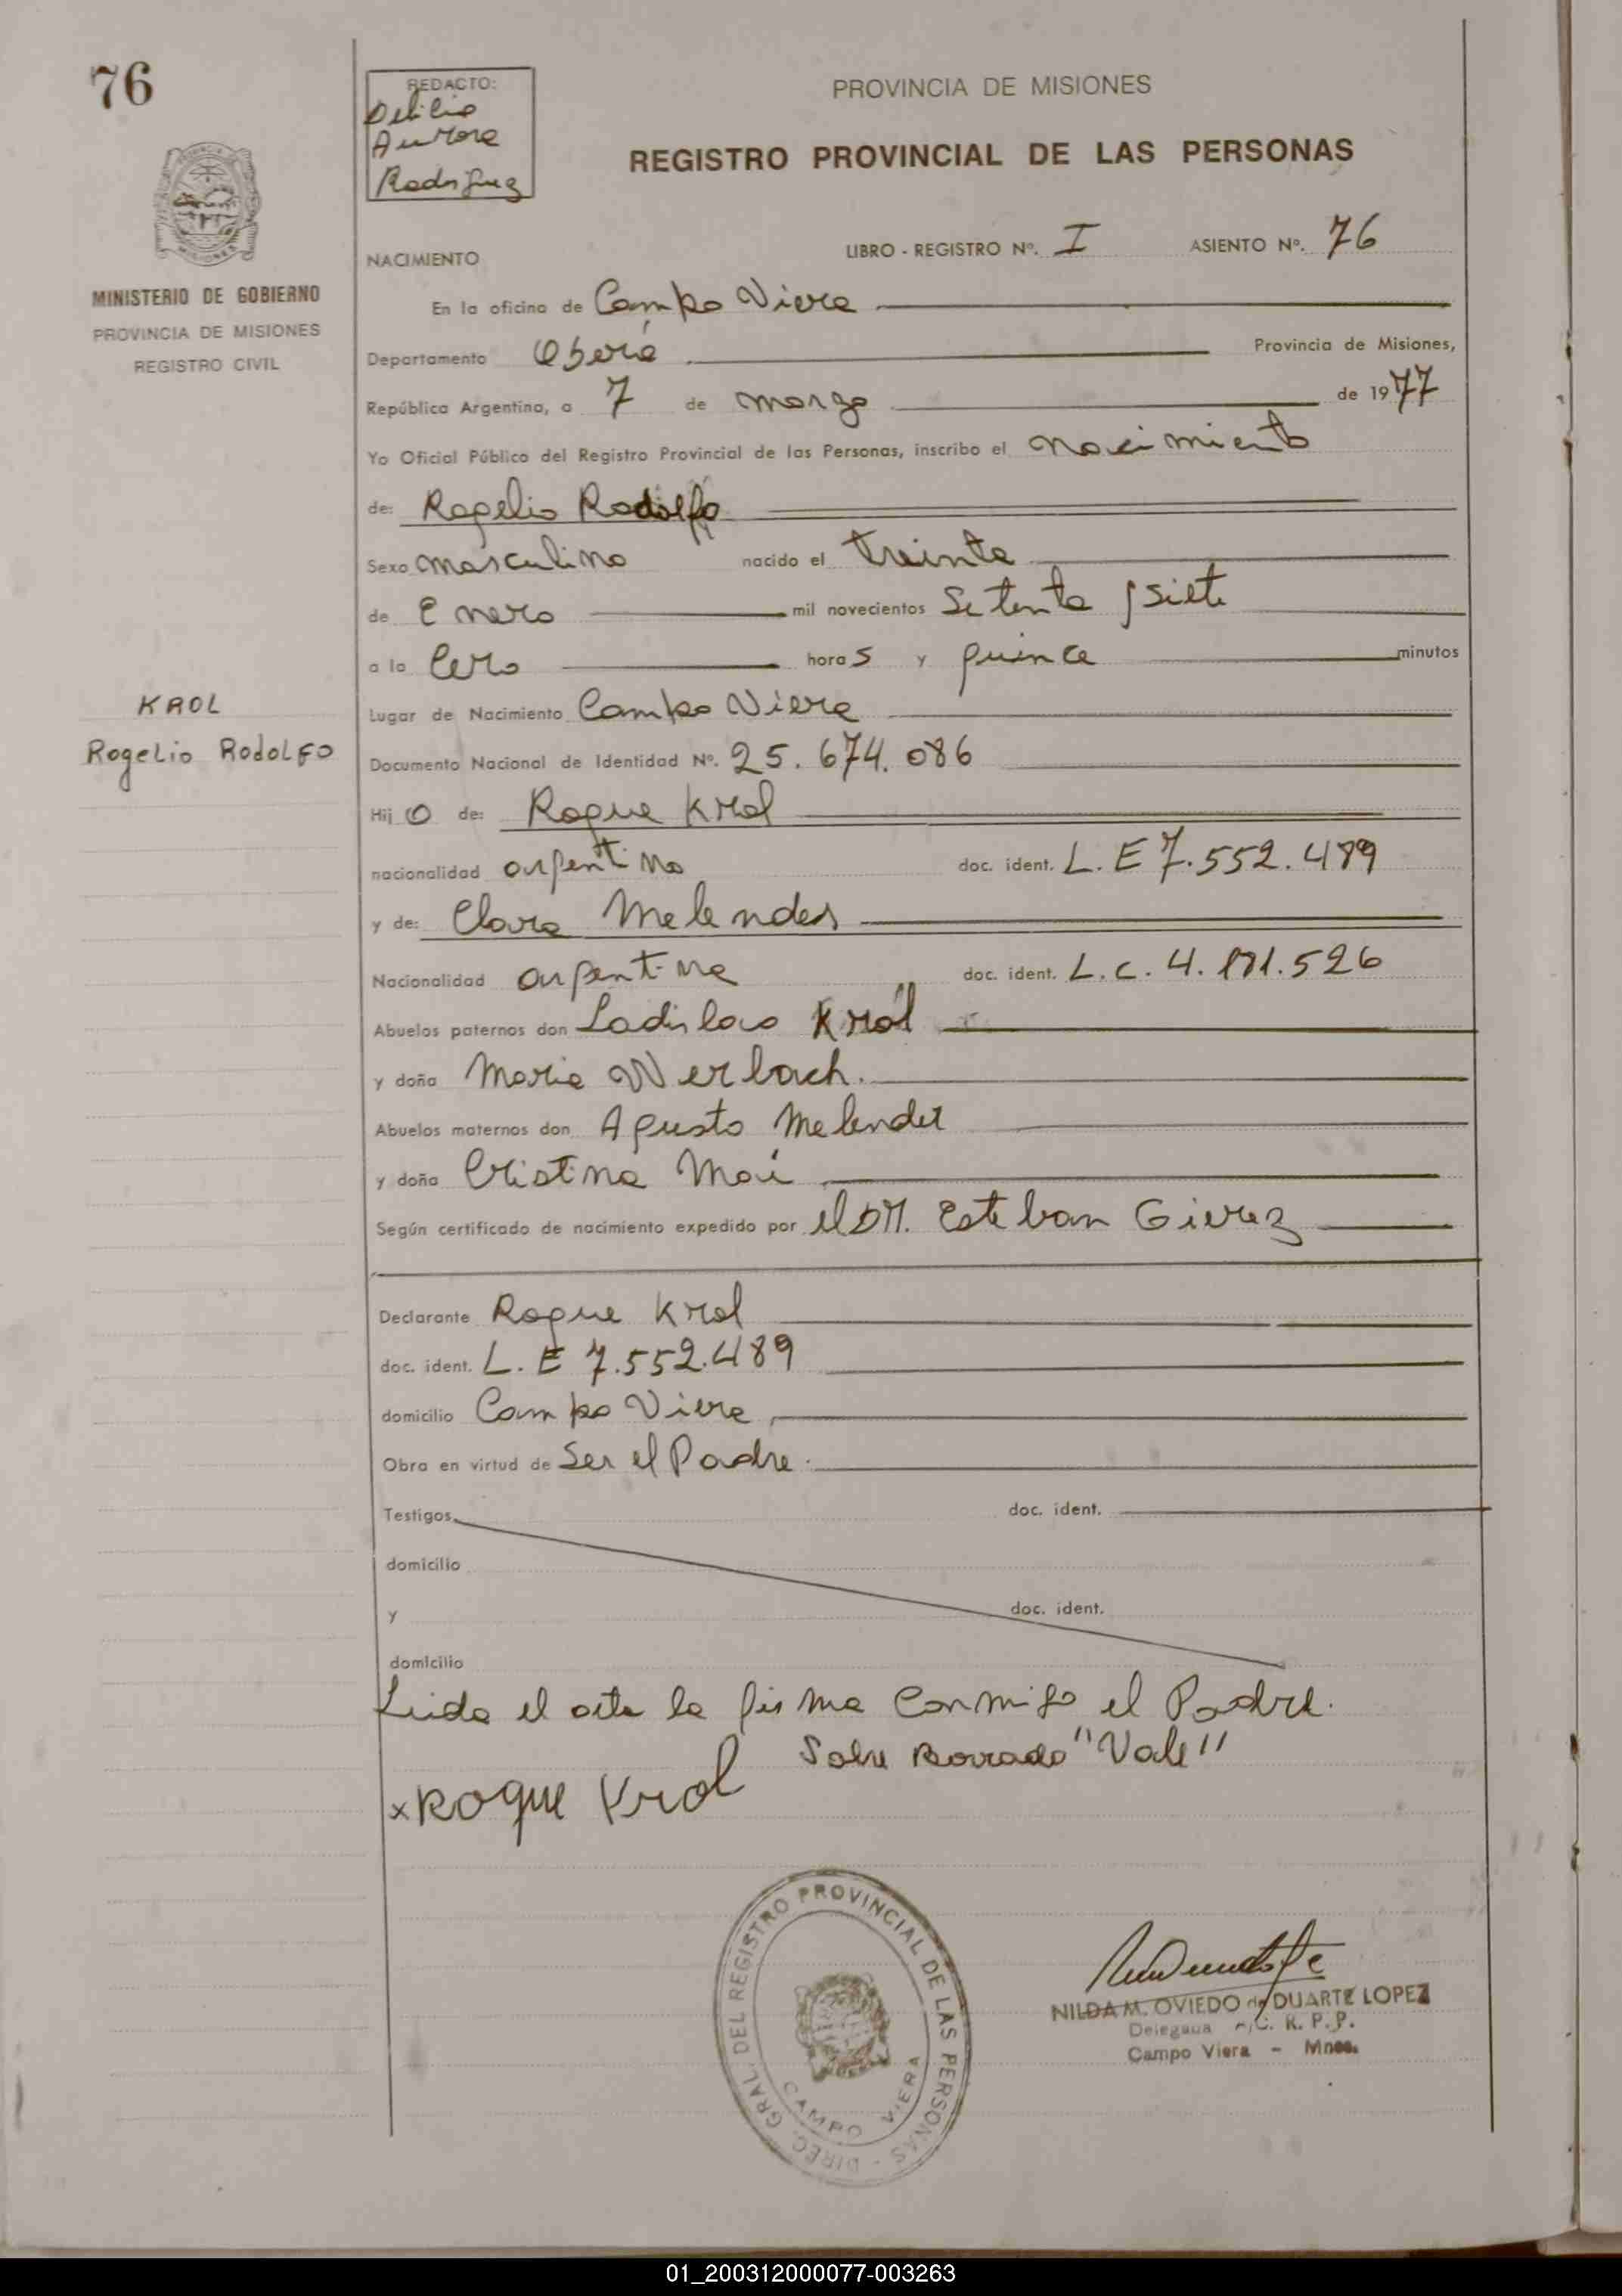 76
REDACTO:
Delicia
Aurora
Rodriguez
PROVINCIA DE MISIONES
REGISTRO PROVINCIAL DE LAS PERSONAS
MINISTERIO DE GOBIERNO
PROVINCIA DE MISIONES
REGISTRO CIVIL
NACIMIENTO LIBRO - REGISTRO Nº. I ASIENTO Nº. 76
En la oficina de Campo Viera
Departamento Oberá Provincia de Misiones,
República Argentina, a 7 de marzo de 1977
Yo Oficial Público del Registro Provincial de las Personas, inscribo el nacimiento
de: Rogelio Rodolfo
Sexo masculino nacido el treinta
de Enero mil novecientos Setenta y siete
a la Cero horas y quince minutos
KROL
Rogelio Rodolfo
Lugar de Nacimiento Campo Viera
Documento Nacional de Identidad Nº. 25.674.086
Hijo de: Roque Krol
nacionalidad argentino doc. ident. L.E 7.552.489
y de: Clara Melendes
Nacionalidad argentina doc. ident. L.C. 4.181.526
Abuelos paternos don Ladislao Król
y doña Maria Werbach.
Abuelos maternos don Agusto Melendez
y doña Cristina Mai
Según certificado de nacimiento expedido por el DR. Esteban Gierez
Declarante Roque Krol
doc. ident. L.E 7.552.489
domicilio Campo Viera
Obra en virtud de Ser el Padre.
Testigos doc. ident.
domicilio
y doc. ident.
domicilio
Leida el acta la firma conmigo el Padre.
Sobre Borrado "Vale"
x Roque Krol
DIREC. GRAL. DEL REGISTRO PROVINCIAL DE LAS PERSONAS -
CAMPO VIERA
NILDA M. OVIEDO de DUARTE LOPEZ
Delegada R.P.P.
Campo Viera - Mnes.
01_200312000077-003263